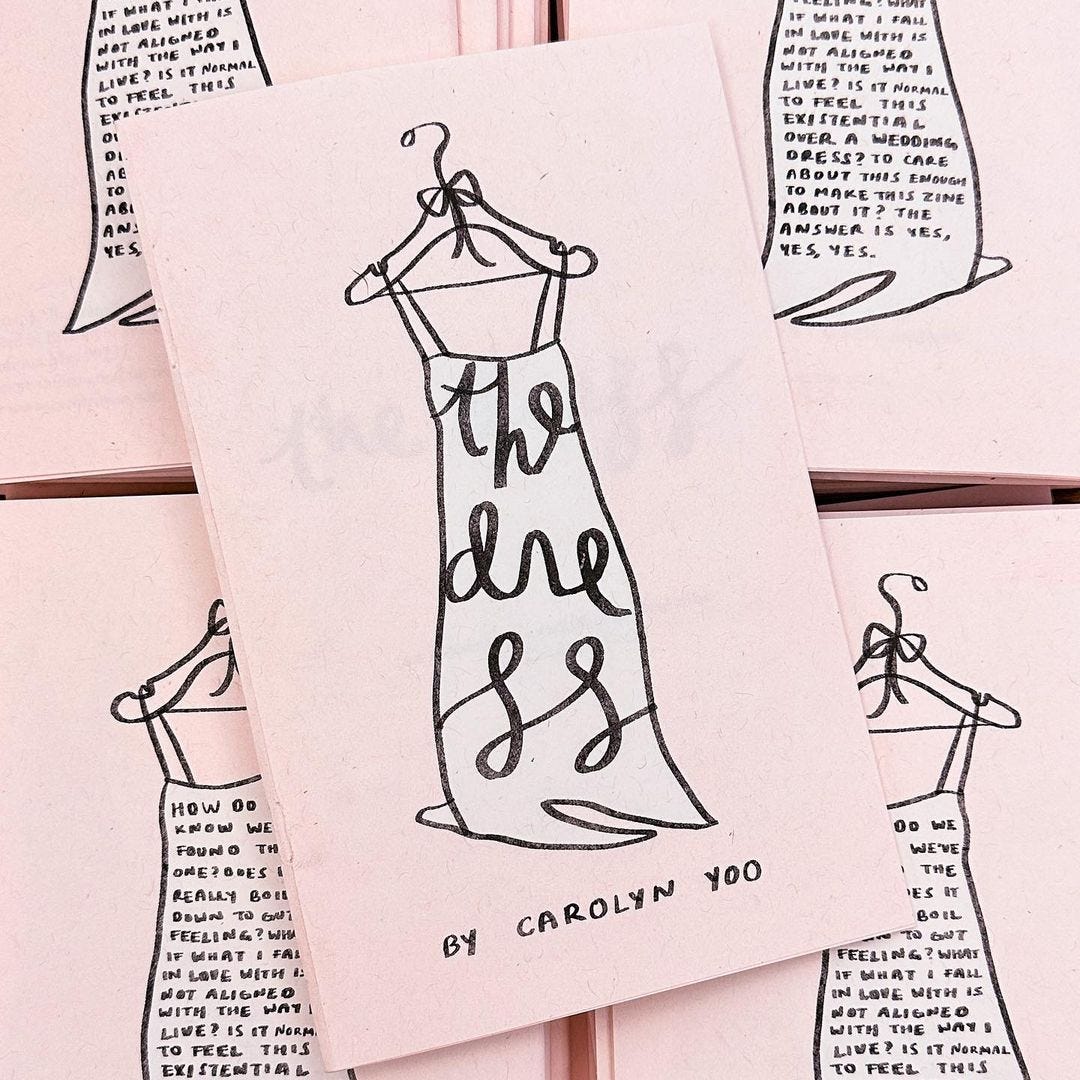 IF WHAT I
IN LOVE WITH IS
NOT ALIGNED
WITH THE WAY I
LIVE? IS IT NORMAL
TO FEEL THIS
TO
ANS
YES,
FEELING? WHAT
IF WHAT I FALL
IN LOVE WITH IS
NOT ALIGNED
WITH THE WAY I
LIVE? IS IT NORMAL
TO FEEL THIS
EXISTENTIAL
OVER A WEDDING
DRESS? TO CARE
ABOUT THIS ENOUGH
TO MAKE THIS ZINE
ABOUT IT? THE
ANSWER IS YES,
YES, YES.
the
dre
ss
BY CAROLYN YOO
HOW DO
KNOW WE
FOUND TH
ONE? DOES I
REALLY BOIL
DOWN TO GUT
FEELING? WH
IF WHAT I FAL
IN LOVE WITH IS
NOT ALIGNED
WITH THE WAY I
LIVE? IS IT NORM
TO FEEL THIS
EXISTENTIAL
DO WE
WE'VE
THE
ES IT
BOIL
TO GUT
FEELING? WHAT
IF WHAT I FALL
IN LOVE WITH IS
NOT ALIGNED
WITH THE WAY I
LIVE? IS IT NORMAL
TO FEEL THIS